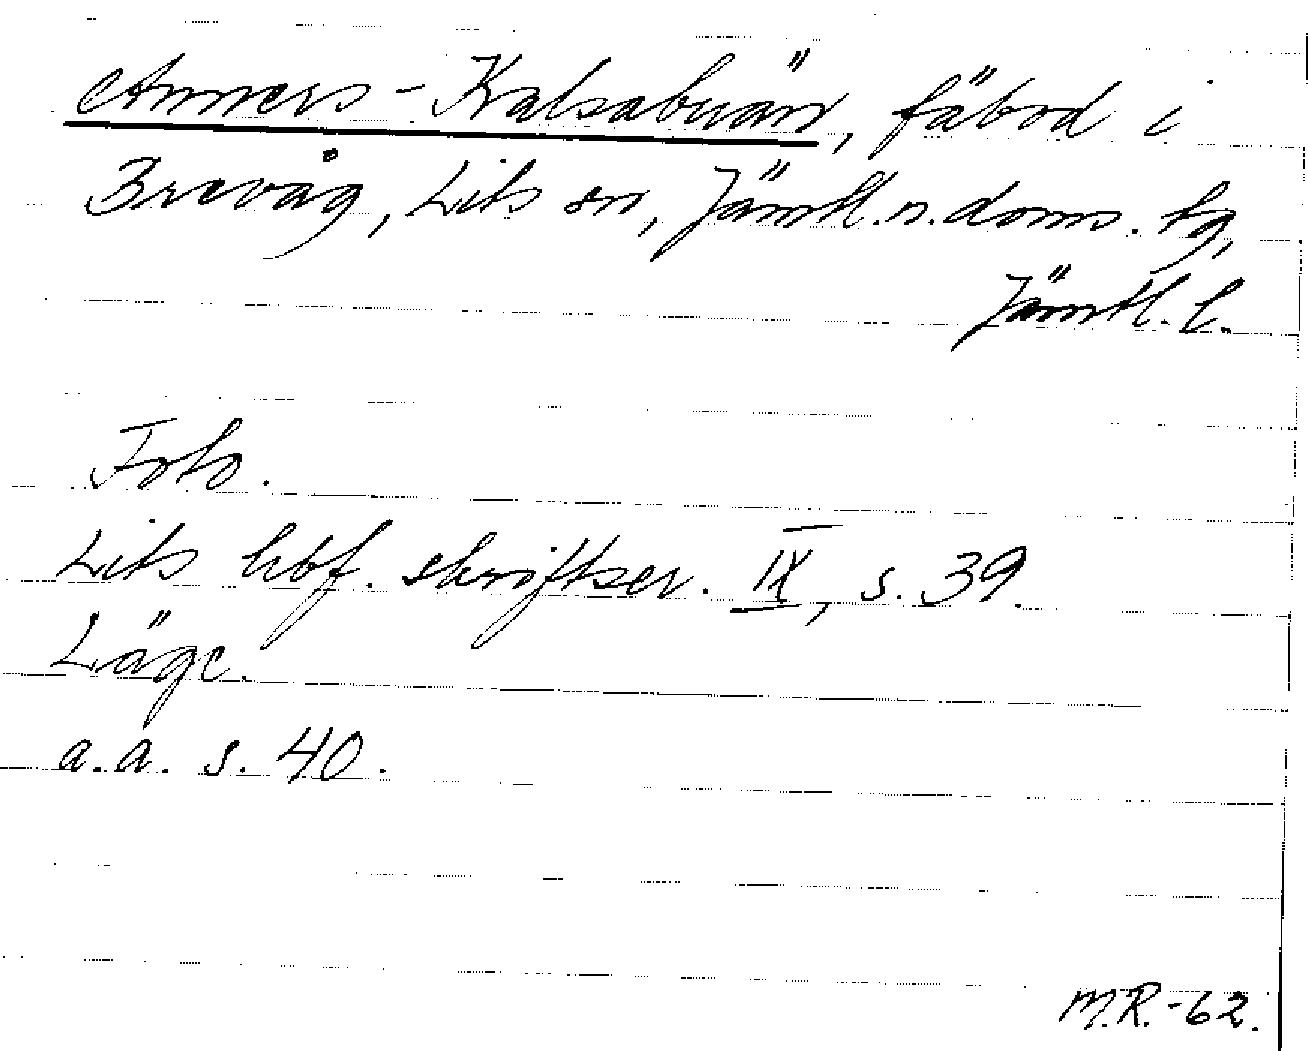 Anners-Kalsabuän, fäbod i
Brevåg, Lits sn, Jämtl.n.doms.tg,
Jämtl.l.
Foto.
Lits hbf. skriftser. IX, s. 39.
Läge.
a.a. s. 40.
M.R.-62.